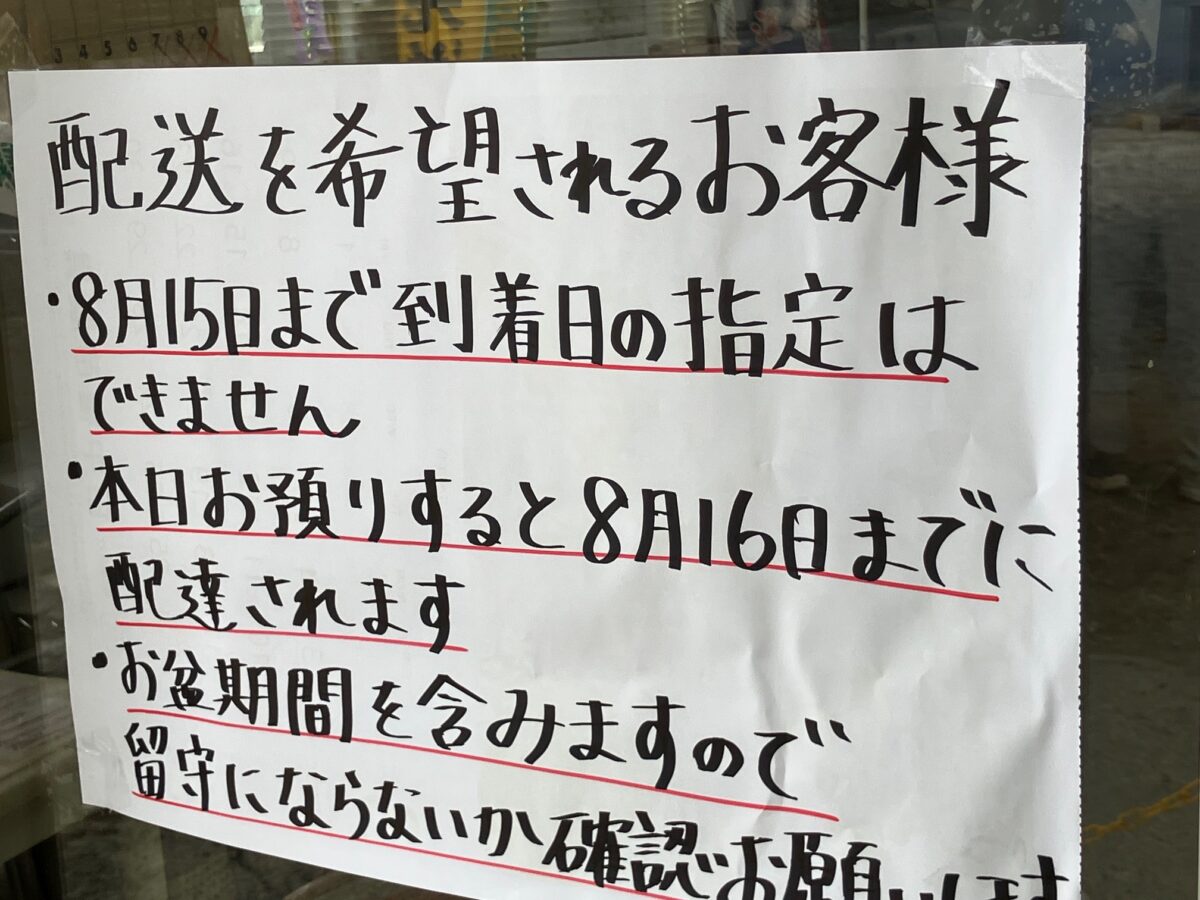 3 4 5 6 7 8 9
配送を希望されるお客様
・8月15日まで到着日の指定は
できません
・本日お預りすると8月16日までに
配達されます
・お盆期間を含みますので
留守にならないか確認お願いします